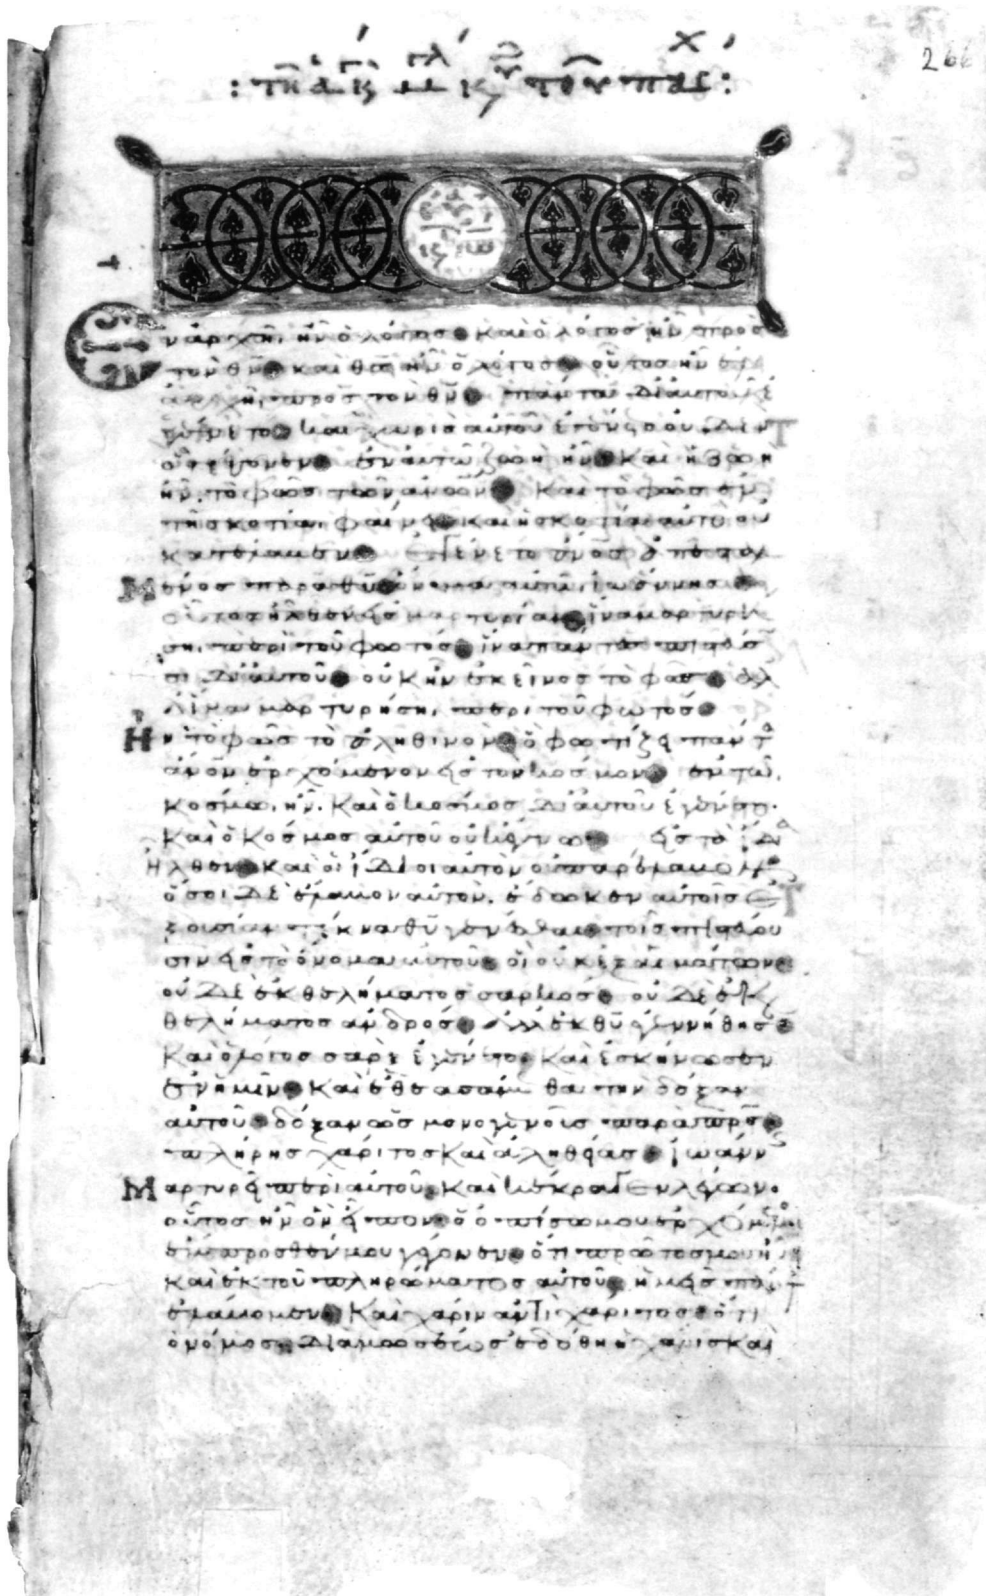 : τῆ ἁγί κ μεγάλ κυ τοῦ πάσχ :
266
ν ἀρχῆ ἦν ὁ λόγοσ καὶ ὁ λόγοσ ἦν πρὸσ
τὸν θν καὶ θσ ἦν ὁ λόγοσ οὗτοσ ἦν ἐν
ἀρχῆ πρὸσ τὸν θν πάντα δι αὐτοῦ ἐ
γένετο καὶ χωρὶσ αὐτοῦ ἐγένετο οὐδὲν
ὃ γέγονεν ἐν αὐτῶ ζωὴ ἦν καὶ ἡ ζωὴ
ἦν τὸ φῶσ τῶν ἀνων καὶ τὸ φῶσ ἐν
τῆ σκοτία φαίνει καὶ ἡ σκοτία αὐτὸ οὐ
κατέλαβεν Ἐγένετο ἀνοσ ἀπεσταλ
μένοσ παρὰ θυ ὄνομα αὐτῶ ἰωάννησ
οὗτοσ ἦλθεν εἰσ μαρτυρίαν ἵνα μαρτυρή
ση περὶ τοῦ φωτόσ ἵνα πάντεσ πιστεύσω
σι δι αὐτοῦ οὐκ ἦν ἐκεῖνοσ τὸ φῶσ ἀλ
λ ἵνα μαρτυρήση περὶ τοῦ φωτόσ
Ἦν τὸ φῶσ τὸ ἀληθινόν ὃ φωτίζει πάντα
ἀνον ἐρχόμενον εἰσ τὸν κόσμον ἐν τῶ
κόσμω ἦν καὶ ὁ κόσμοσ δι αὐτοῦ ἐγένετο
καὶ ὁ κόσμοσ αὐτὸν οὐκ ἔγνω εἰσ τὰ ἴδια
ἦλθεν καὶ οἱ ἴδιοι αὐτὸν οὐ παρέλαβον
ὅσοι δὲ ἔλαβον αὐτὸν ἔδωκεν αὐτοῖσ ἐ
ξουσίαν τέκνα θυ γενέσθαι τοῖσ πιστεύου
σιν εἰσ τὸ ὄνομα αὐτοῦ οἳ οὐκ ἐξ αἱμάτων
οὐδὲ ἐκ θελήματοσ σαρκόσ οὐδὲ ἐκ
θελήματοσ ἀνδρόσ ἀλλ ἐκ θυ ἐγεννήθησαν
καὶ ὁ λόγοσ σὰρξ ἐγένετο καὶ ἐσκήνωσεν
ἐν ἡμῖν καὶ ἐθεασάμεθα τὴν δόξαν
αὐτοῦ δόξαν ὡσ μονογενοῦσ παρὰ πρσ
πλήρησ χάριτοσ καὶ ἀληθείασ ἰωάννησ
Μαρτυρεῖ περὶ αὐτοῦ καὶ κέκραγεν λέγων
οὗτοσ ἦν ὃν εἶπον ὁ ὀπίσω μου ἐρχόμενοσ
ἔμπροσθέν μου γέγονεν ὅτι πρῶτόσ μου ἦν
καὶ ἐκ τοῦ πληρώματοσ αὐτοῦ ἡμεῖσ πάντεσ
ἐλάβομεν καὶ χάριν ἀντὶ χάριτοσ ὅτι
ὁ νόμοσ διὰ μωσέωσ ἐδόθη ἡ χάρισ καὶ